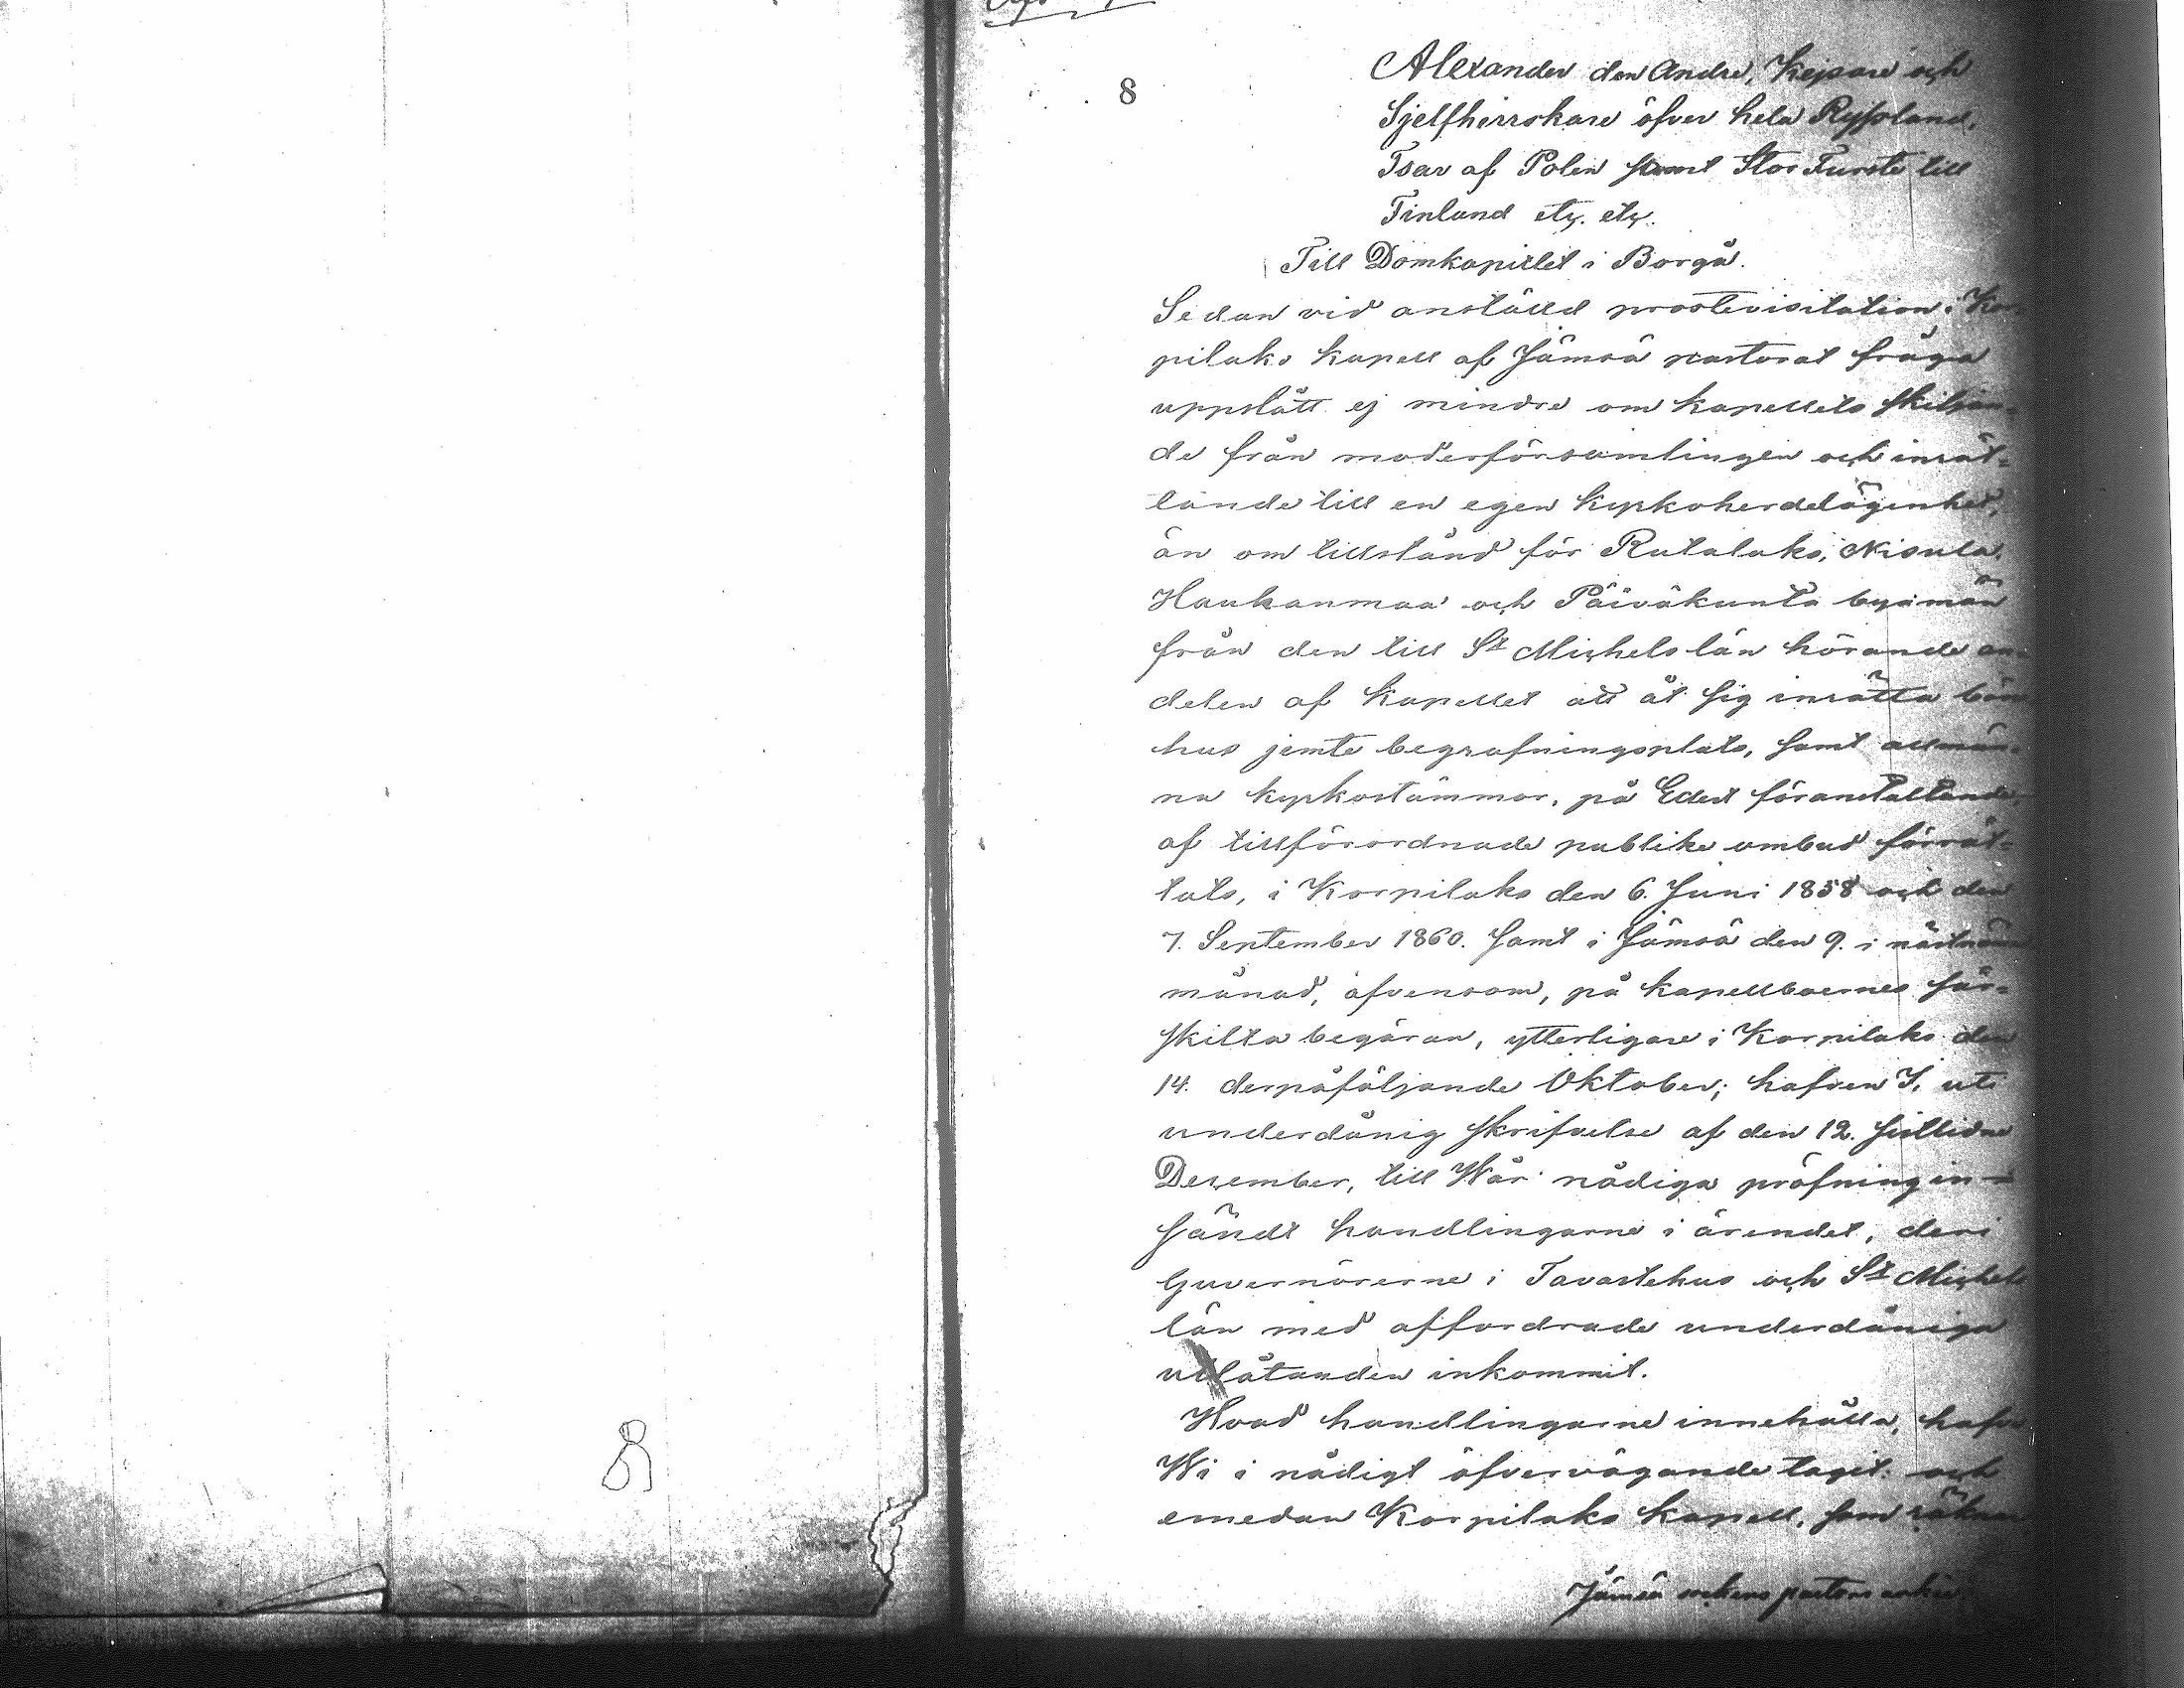 8
Alexander den Andre, Kejsare och
Sjelfherrskare öfver hela Ryssland,
Tsar af Polen samt Stor Furste till
Finland etc. etc.
Till Domkapitlet i Borgå.
Sedan vid anställd prostevisitation i Kor-
pilaks kapell af Jämsä pastorat fråga
uppstått ej mindre om kapellets skiljan-
de från moderförsamlingen och inrät-
tande till en egen kyrkoherdelägenhet,
än om tillstånd för Rutalaks, Nisula,
Haukanmaa och Päiväkunta byamän
från den till St Michels län hörande an-
delen af kapellet att åt sig inrätta bön
hus jemte begrafningsplats, samt allmän-
na kyrkostämmor, på Edert föranstaltande,
af tillförordnade publike ombud förrät-
tats, i Korpilaks den 6. Juni 1858 och den
7. September 1860. samt i Jämsä den 9. i
månad, äfvensom, på kapellboernes sär-
skilta begäran, ytterligare i Korpilaks den
14. derpåföljande Oktober; hafven I, uti
underdånig skrifvelse af den 12. sistlidne
December, till Wår nådiga pröfning in-
sändt handlingarne i ärendet, deri
Guvernörerne i Tavastehus och St Michels
län med affordrade underdåniga
utlåtanden inkommit.
Hvad handlingarne innehålla, hafve
Wi i nådigt öfvervägande tagit: och
emedan Korpilaks kapell, som
8
Jämsä sockens pastors arkiv